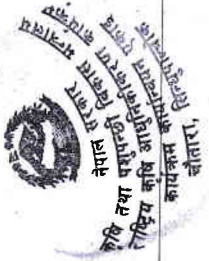 नेपाल सरकार
कृषि तथा पशुपन्छी विकास मन्त्रालय
राष्ट्रिय कृषि आधुनिकीकरण कार्यक्रम
कार्यक्रम कार्यान्वयन एकाई
चौतारा, सिन्धुपाल्चोक